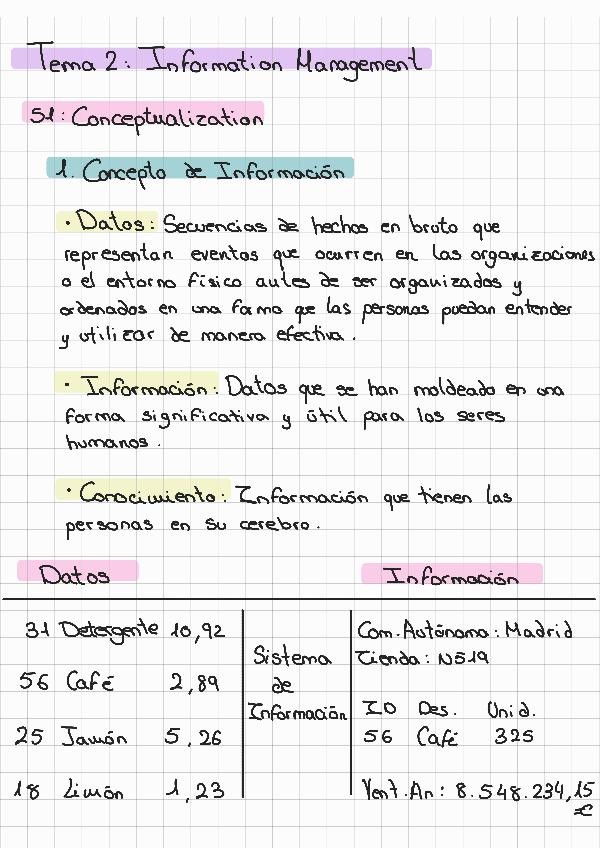 Tema 2: Information Management
S1: Conceptualization
1. Concepto de Información
· Datos: Secuencias de hechos en bruto que
representan eventos que ocurren en las organizaciones
o el entorno físico antes de ser organizados y
ordenados en una forma que las personas puedan entender
y utilizar de manera efectiva.
· Información: Datos que se han moldeado en una
forma significativa y útil para los seres
humanos.
· Conocimiento: Información que tienen las
personas en su cerebro.
Datos
Información
31 Detergente 10,92
56 Café 2,89
25 Jamón 5,26
18 Limón 1,23
Sistema
de
Información
Com. Autónoma: Madrid
Tienda: N519
ID Des. Unid.
56 Café 325
Vent. An: 8.548.234,15
€